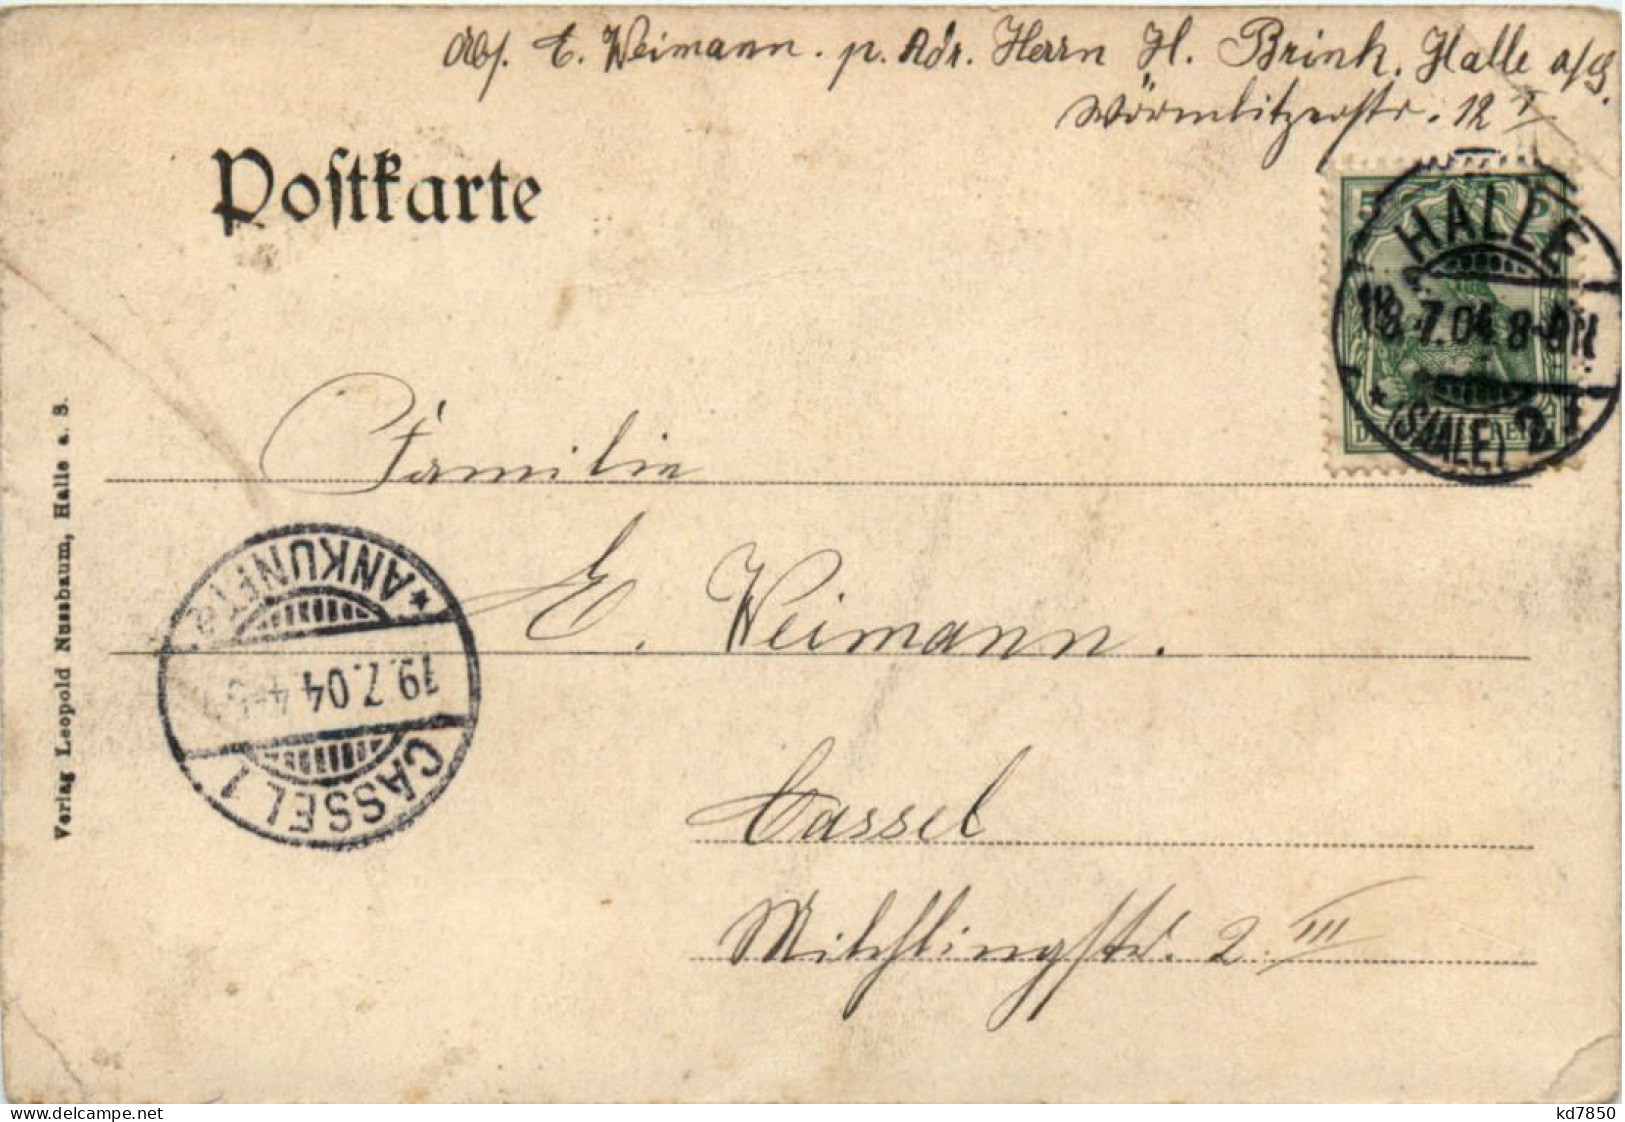 Abs. E. Weimann. p. Adr. Herrn H. Brink, Halle a/S.
Wörmlitzerstr. 12 I
Postkarte
5
HALLE
18.7.04 8-9N.
* (SAALE) 2 f
Familie
E. Weimann.
Cassel
Milchlingstr. 2. III
* ANKUNFTS
19.7.04 4-5
CASSEL 1
Verlag Leopold Nussbaum, Halle a. S.
kd7850